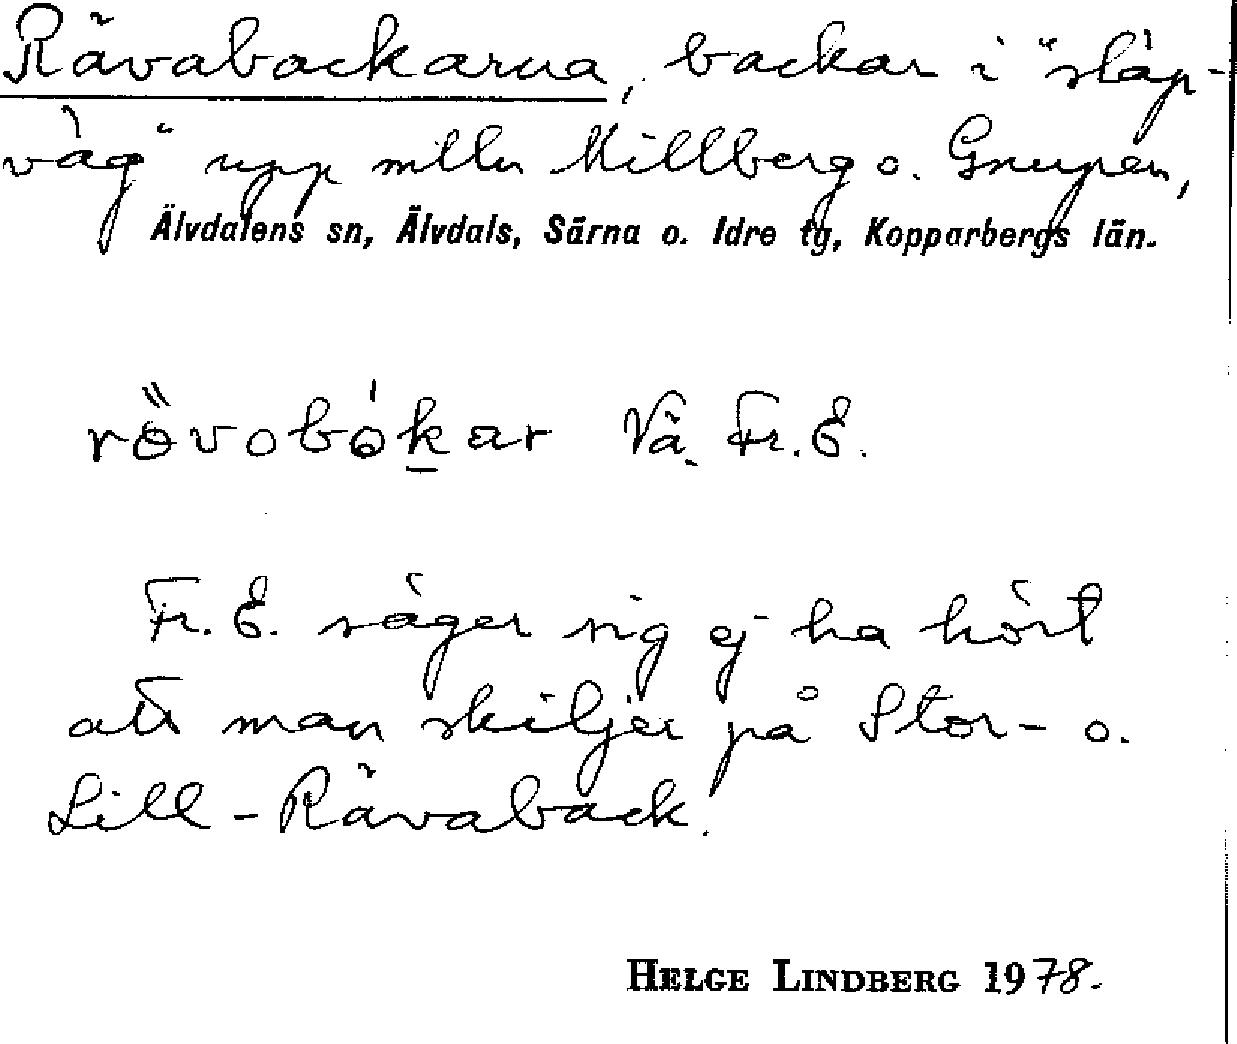 Rävabackarna, backar i "släp-
väg" upp mlln Millberg o. Gnupen,
Älvdalens sn, Älvdals, Särna o. Idre tg, Kopparbergs län.
rövobókar Vä. Fr. E.
Fr. E. säger sig ej ha hört
att man skiljer på Stor- o.
Lill-Rävaback.
HELGE LINDBERG 1978.